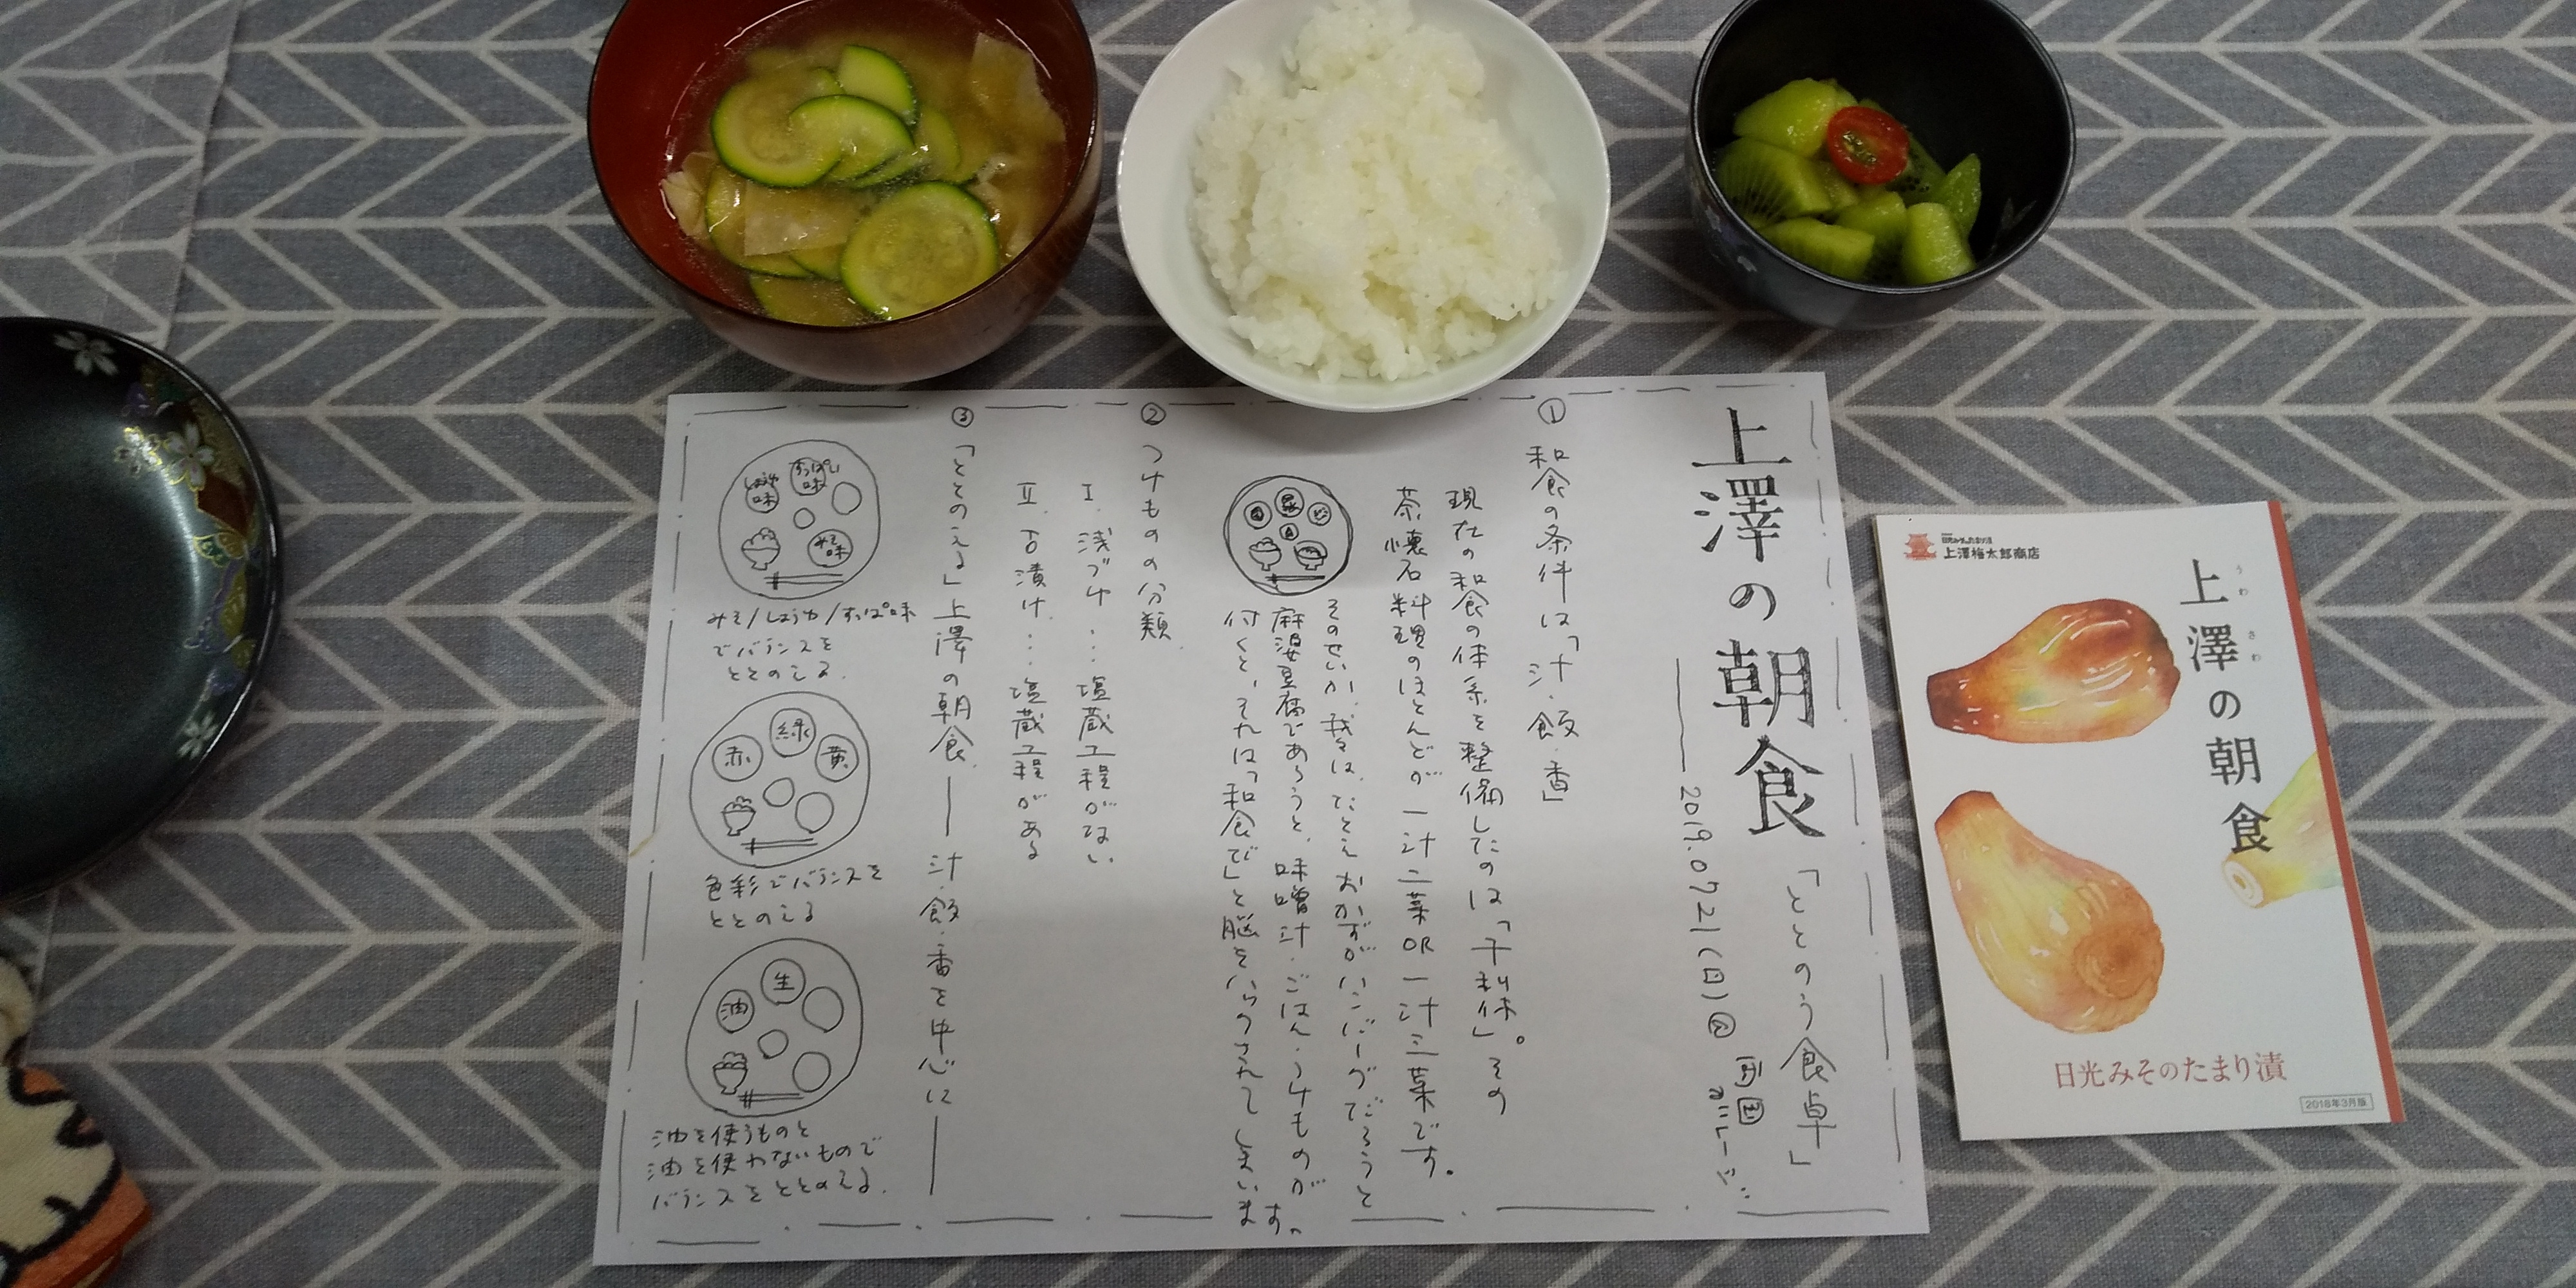 上澤の朝食
「ととのう食卓」
2019.0721(日)@
①和食の条件は「汁・飯・香」
現在の和食の体系を整備したのは「千利休」。その
茶懐石料理のほとんどが一汁二菜OR一汁三菜です。
そのせいか、我々は、たとえおかずがハンバーグだろうと
麻婆豆腐であろうと、味噌汁・ごはん・つけものが
付くと、それは「和食で」と脳をハックされてしまいます。
②つけものの分類
Ⅰ.浅づけ…塩蔵工程がない
Ⅱ.古漬け…塩蔵工程がある
③「ととのえる」上澤の朝食―汁・飯・香を中心に―
すっぱい味
しょうゆ味
みそ味
みそ/しょうゆ/すっぱ味
でバランスを
ととのえる。
緑
赤
黄
色彩でバランスを
ととのえる
生
油
油を使うものと
油を使わないもので
バランスをととのえる。
上澤梅太郎商店
うわさわ
上澤の朝食
日光みそのたまり漬
2018年3月版